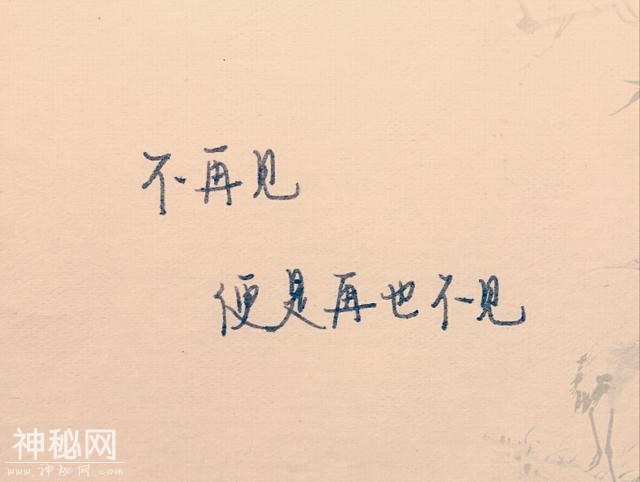 不再见
便是再也不见
神秘网
www.神秘网.com